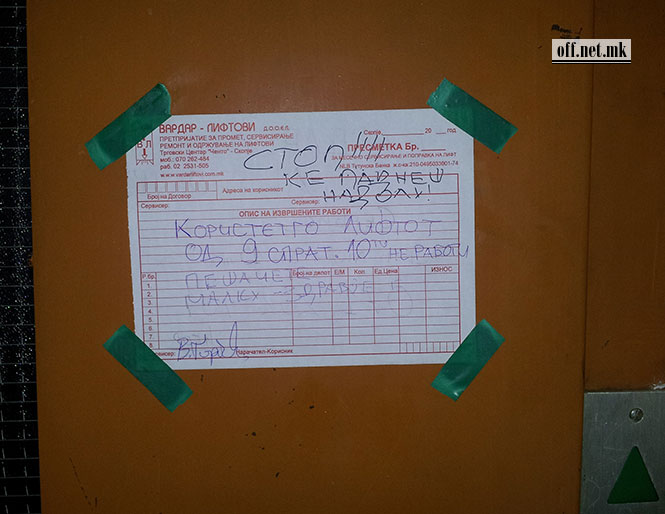 off.net.mk
ВЛ
ВАРДАР - ЛИФТОВИ Д.О.О.Е.Л.
ПРЕТПРИЈАТИЕ ЗА ПРОМЕТ, СЕРВИСИРАЊЕ
РЕМОНТ И ОДРЖУВАЊЕ НА ЛИФТОВИ
Трговски Центар "Ченто" - Скопје
моб. 070 262-484
раб. 02 2531-505
www.vardarliftovi.com.mk
Скопје, 20 год.
ПРЕСМЕТКА Бр.
ЗА МЕСЕЧНО СЕРВИСИРАЊЕ И ПОПРАВКА НА ЛИФТ
НЛБ Тутунска Банка
СТОП!!!!
ЌЕ ПАДНЕШ
НАДОЛУ!
Број на Договор
Адреса на корисникот
Сервисер:
Сервисер:
ОПИС НА ИЗВРШЕНИТЕ РАБОТИ
КОРИСТЕТГО ЛИФТОТ
ОД 9 СПРАТ. 10ти НЕ РАБОТИ
Р.бр. Број на делот Е/М Кол. Ед.Цена ИЗНОС
1.
2.
3.
4.
5.
6.
7.
8.
ПЕШАЧЕТЕ
МАЛКУ ЗДРАВЈЕ Е
Нарачател-Корисник